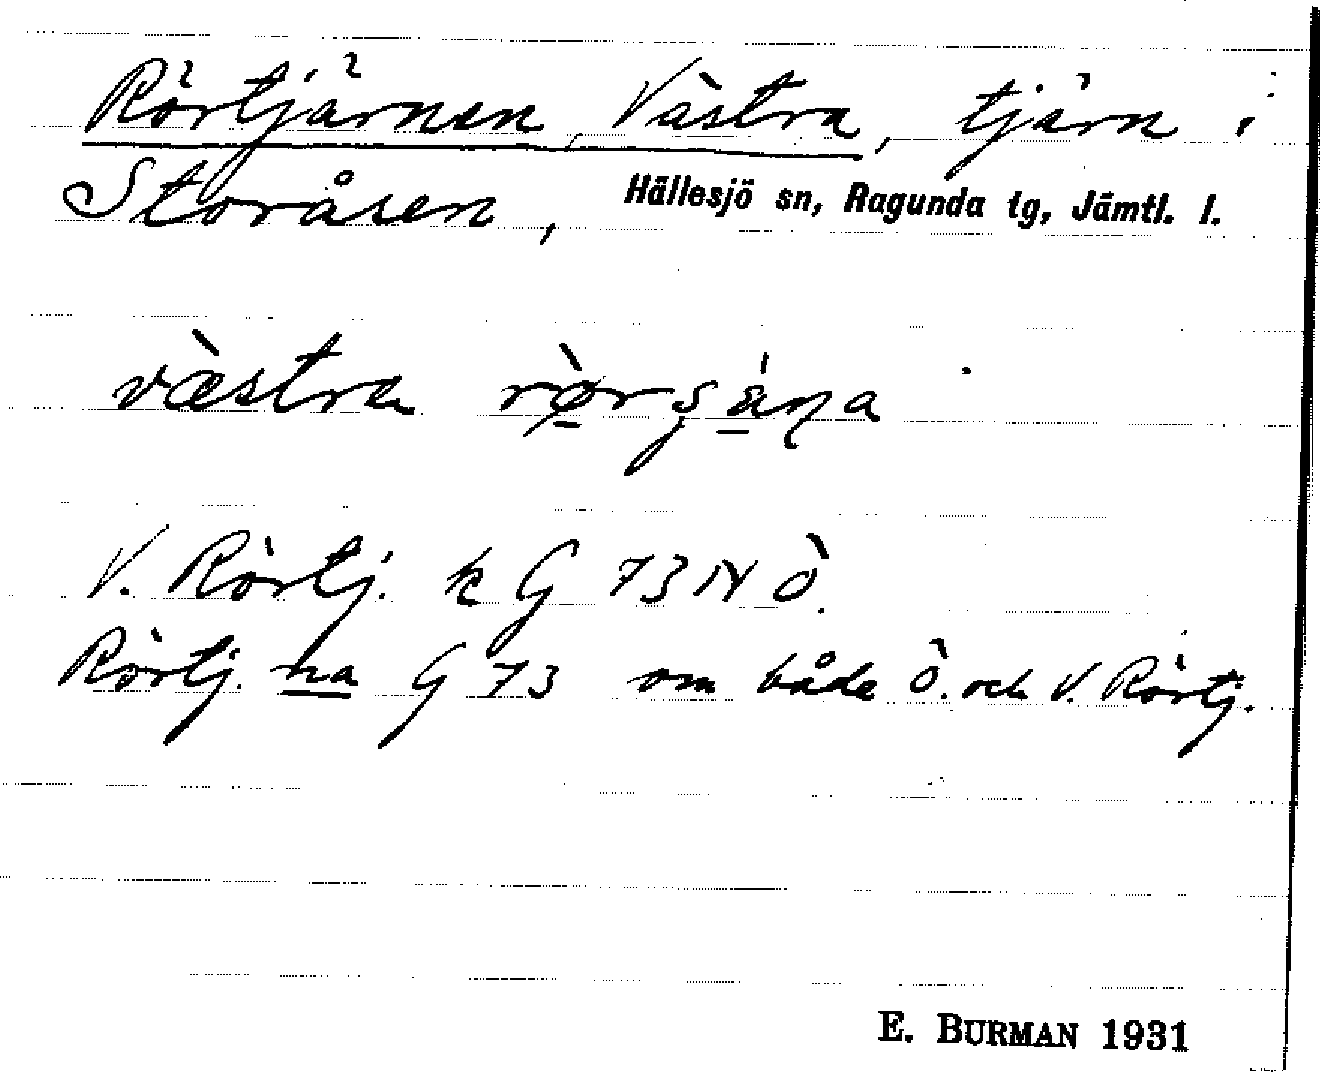 Rörtjärnen, Västra, tjärn i
Storåsen, Hällesjö sn, Ragunda tg, Jämtl. l.
västra
V. Rörtj. k G 73 NÖ.
Rörtj. na G 73 om både Ö. och V. Rörtj.
E. BURMAN 1931